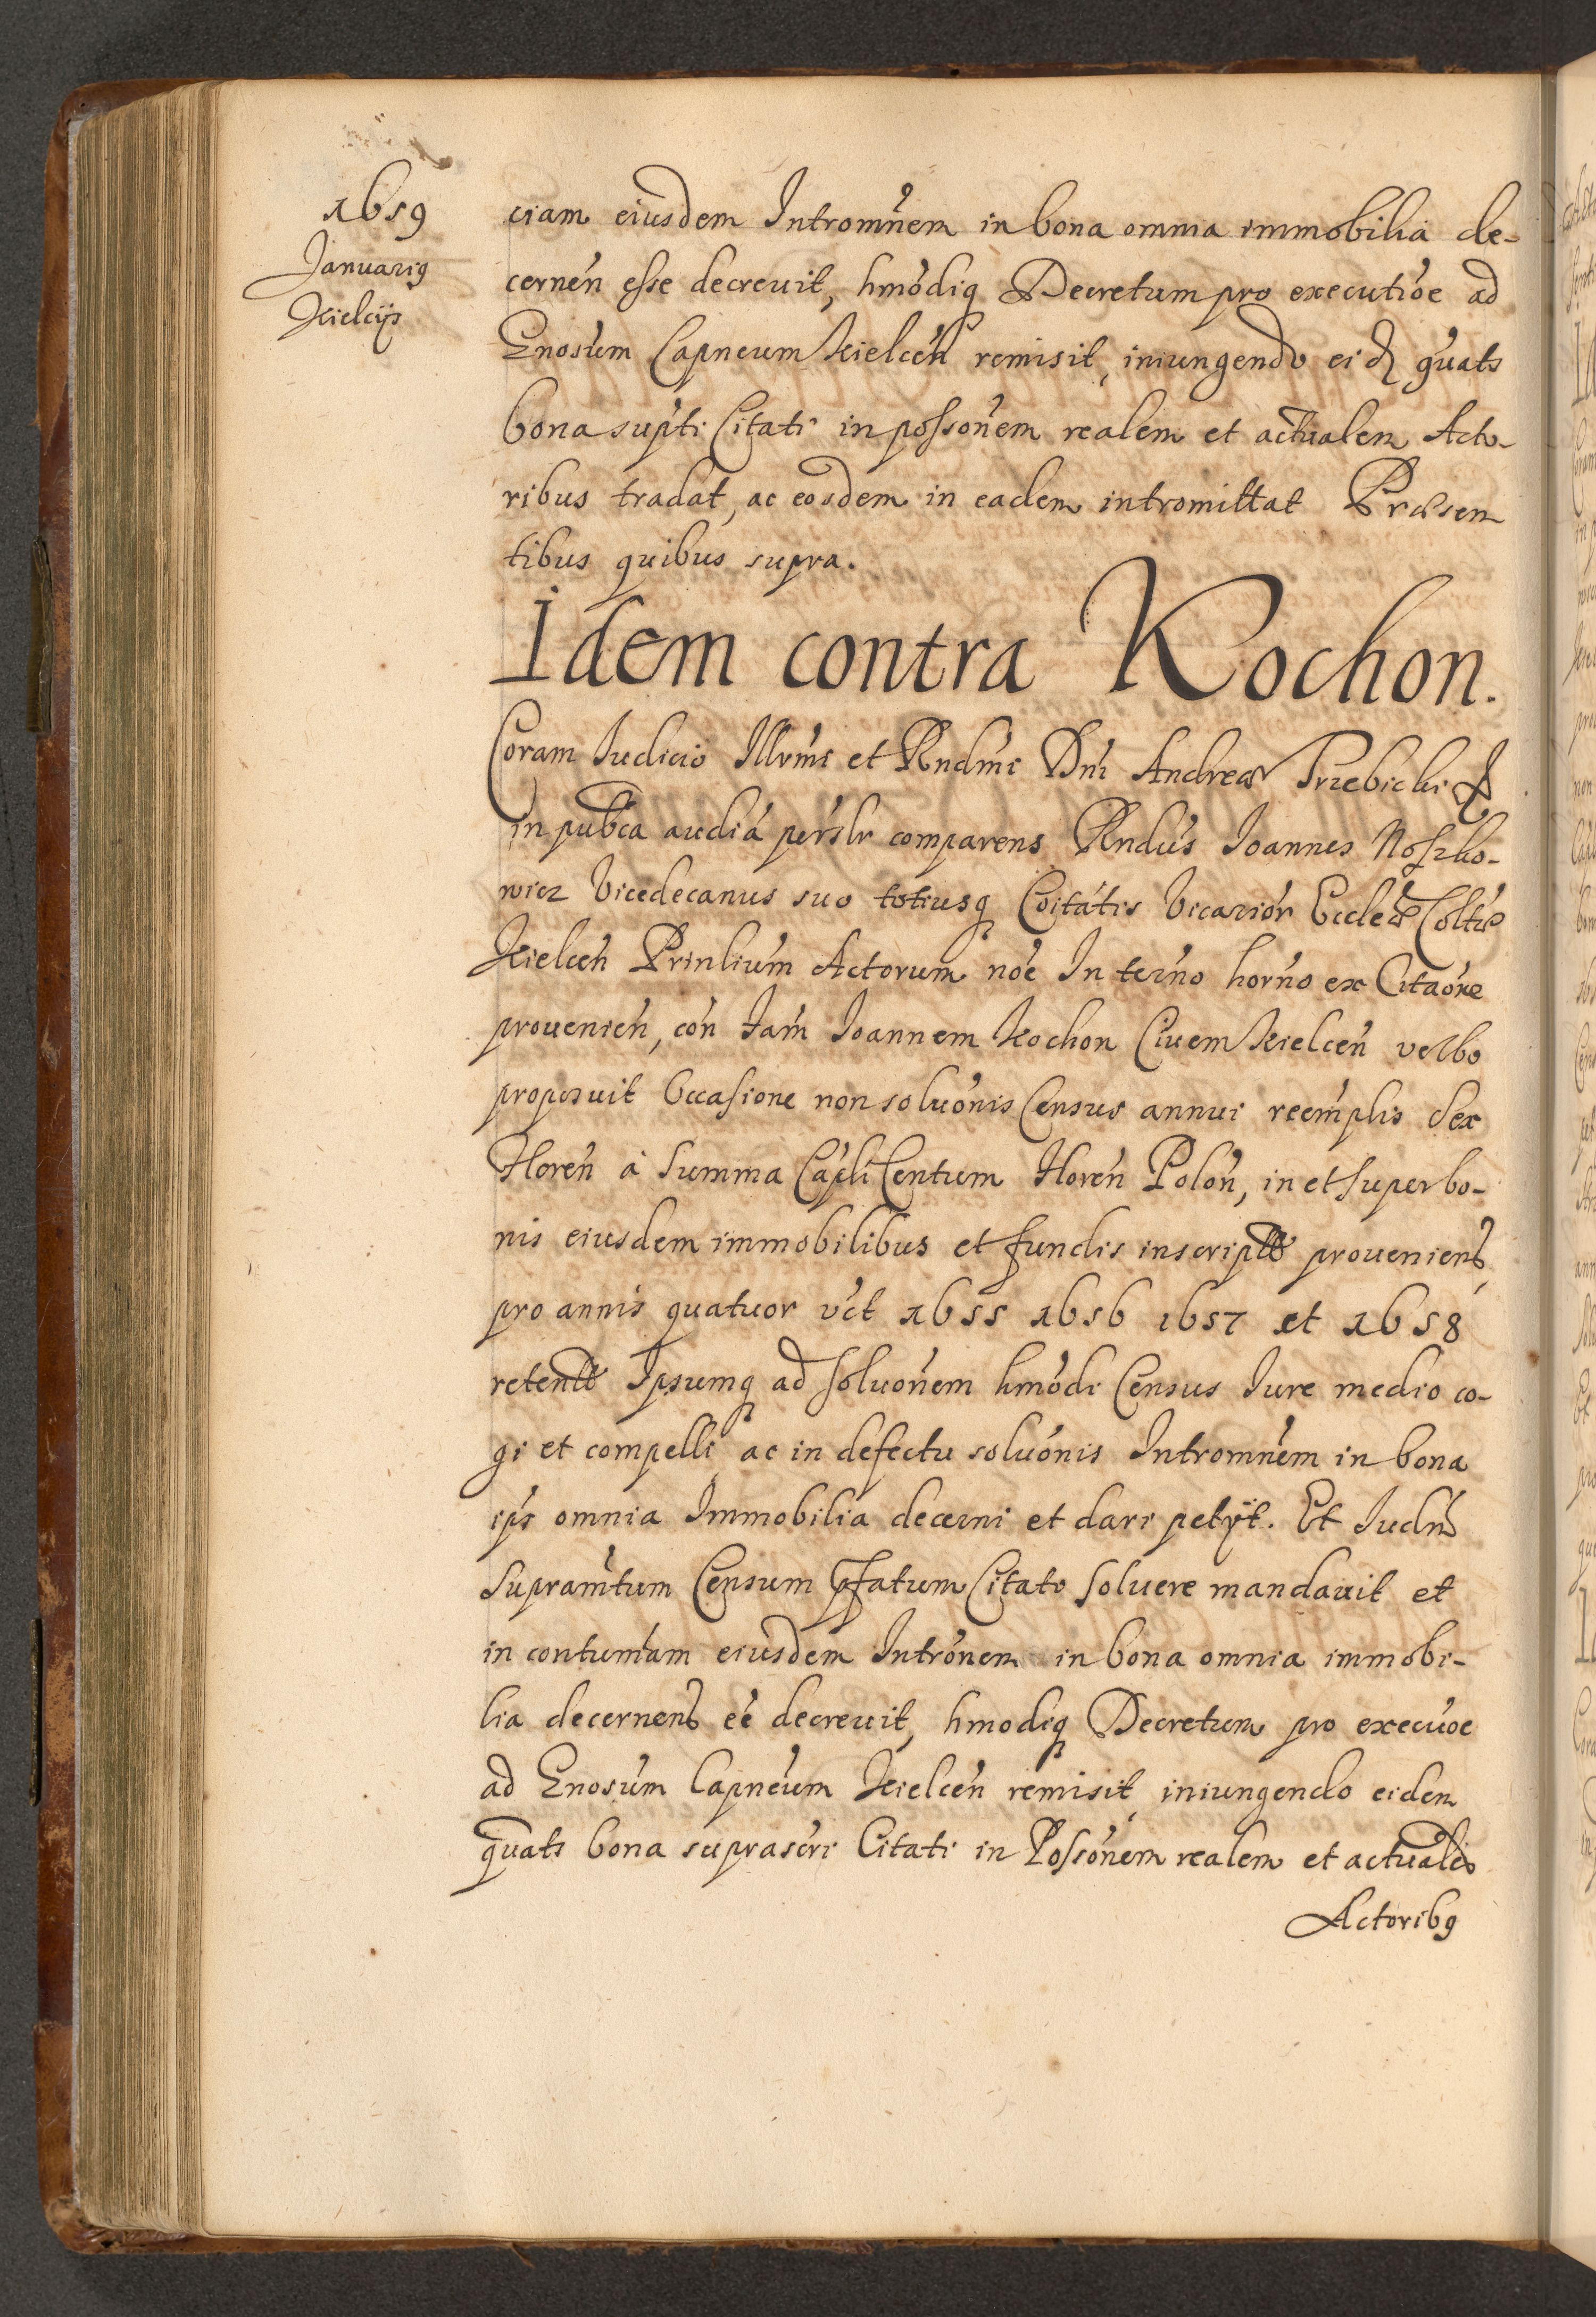 1659
Januarig
Kielcijs
ciam eiusdem Intromnem in bona omnia immobilia de-
cernen esse decrevit, hmodiq Decretum pro executioe ad
Gnosum Capneum Kielcen remisit, iniungendo eid quats
bona supti Citati in possonem realem et actualem Acto-
ribus tradat, ac eosdem in eadem intromittat Præsen
tibus quibus supra.
Idem contra Kochon.
Coram Iudicio Illrmi et Rndmi Dni Andreæ Trzebicki &
in pubca audia perslr comparens Rndus Ioannes Noszko-
wicz Vicedecanus suo totiusq Coitatis Vicarior Eccleæ Coltæ
Kielcen Prinlium Actorum noe In terno horno ex Citaone
provenien, con Fam Ioannem Kochon Civem Kielcen verbo
proposuit Occasione non soluonis Census annui reemplis sex
Floren à Summa Capli Centum Floren Polon, in et super bo-
nis eiusdem immobilibus et fundis inscript provenient,
pro annis quatuor vct 1655 1656 1657 et 1658
retent Ipsumq ad soluonem hmodi Census Iure medio co-
gi et compelli ac in defectu soluonis Intromnem in bona
ips omnia Immobilia decerni et dari petÿt. Et Iudm
Supramtum Censum pfatum Citato soluere mandavit et
in contumiam eiusdem Intronem in bona omnia immobi-
lia decernend eé decrevit, hmodiq Decretum pro execuoe
ad Gnosum Capneum Kielcen remisit, iniungendo eidem
quats bona suprascri Citati in Possonem realem et actuale
Actoribg